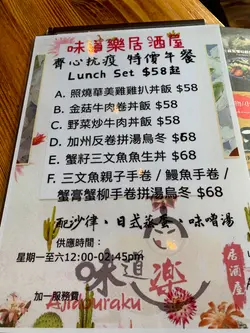 味道樂居酒屋
齊心抗疫 特價午餐
Lunch Set $58起
A. 照燒華美雞雞扒丼飯 $58
B. 金菇牛肉卷丼飯 $58
C. 野菜炒牛肉丼飯 $58
D. 加州反卷拼湯烏冬 $68
E. 蟹籽三文魚魚生丼 $68
F. 三文魚親子手卷 / 鰻魚手卷 /
蟹膏蟹柳手卷拼湯烏冬 $68
配沙律、日式蒸蛋、味噌湯
供應時間：
星期一至六12:00-02:45pm
味道樂
居酒屋
加一服務費
Ajidouraku